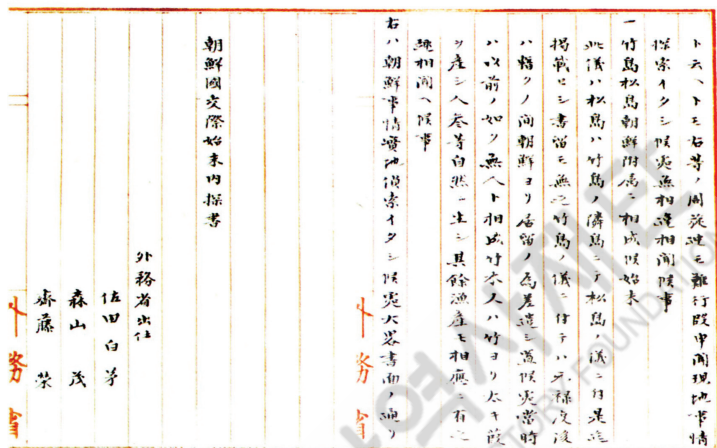 ト云ヘトモ右等ノ周旋迚モ難行段申聞現地事情
探索イタシ候処無相違相聞候事
一 竹島松島朝鮮附属ニ相成候始末
此儀ハ松島ハ竹島ノ隣島ニテ松島ノ儀ニ付是迄
掲載セシ書留モ無之竹島ノ儀ニ付テハ元禄度後
ハ暫クノ間朝鮮ヨリ居留ノ為差遣シ置候処当時
ハ以前ノ如ク無人ト相成竹木又ハ竹ヨリ太キ葭
ヲ産シ人参等自然ニ生シ其餘漁産モ相應ニ有之
趣相聞ヘ候事
右ハ朝鮮事情實地偵索イタシ候処大略書面ノ通リ
朝鮮國交際始末内探書
外務省出仕
佐田白茅
森山茂
齋藤榮
外務省
外務省
역사재단
HISTORY FOUNDATION